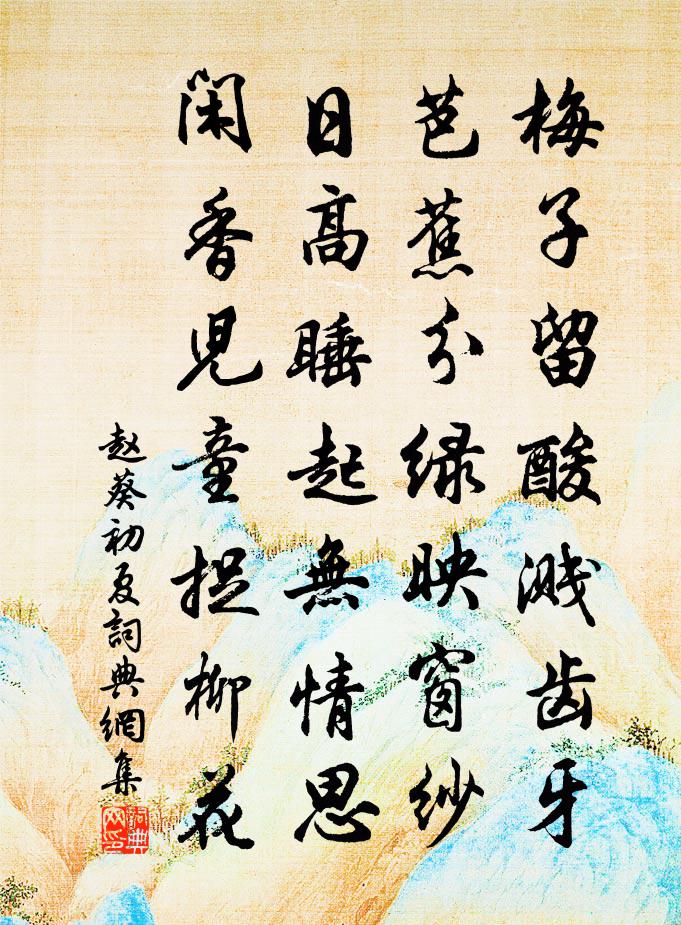 梅子留酸溅齿牙
芭蕉分绿映窗纱
日高睡起無情思
闲香児童捉柳花
赵葵初夏詞典網集
詞典網印